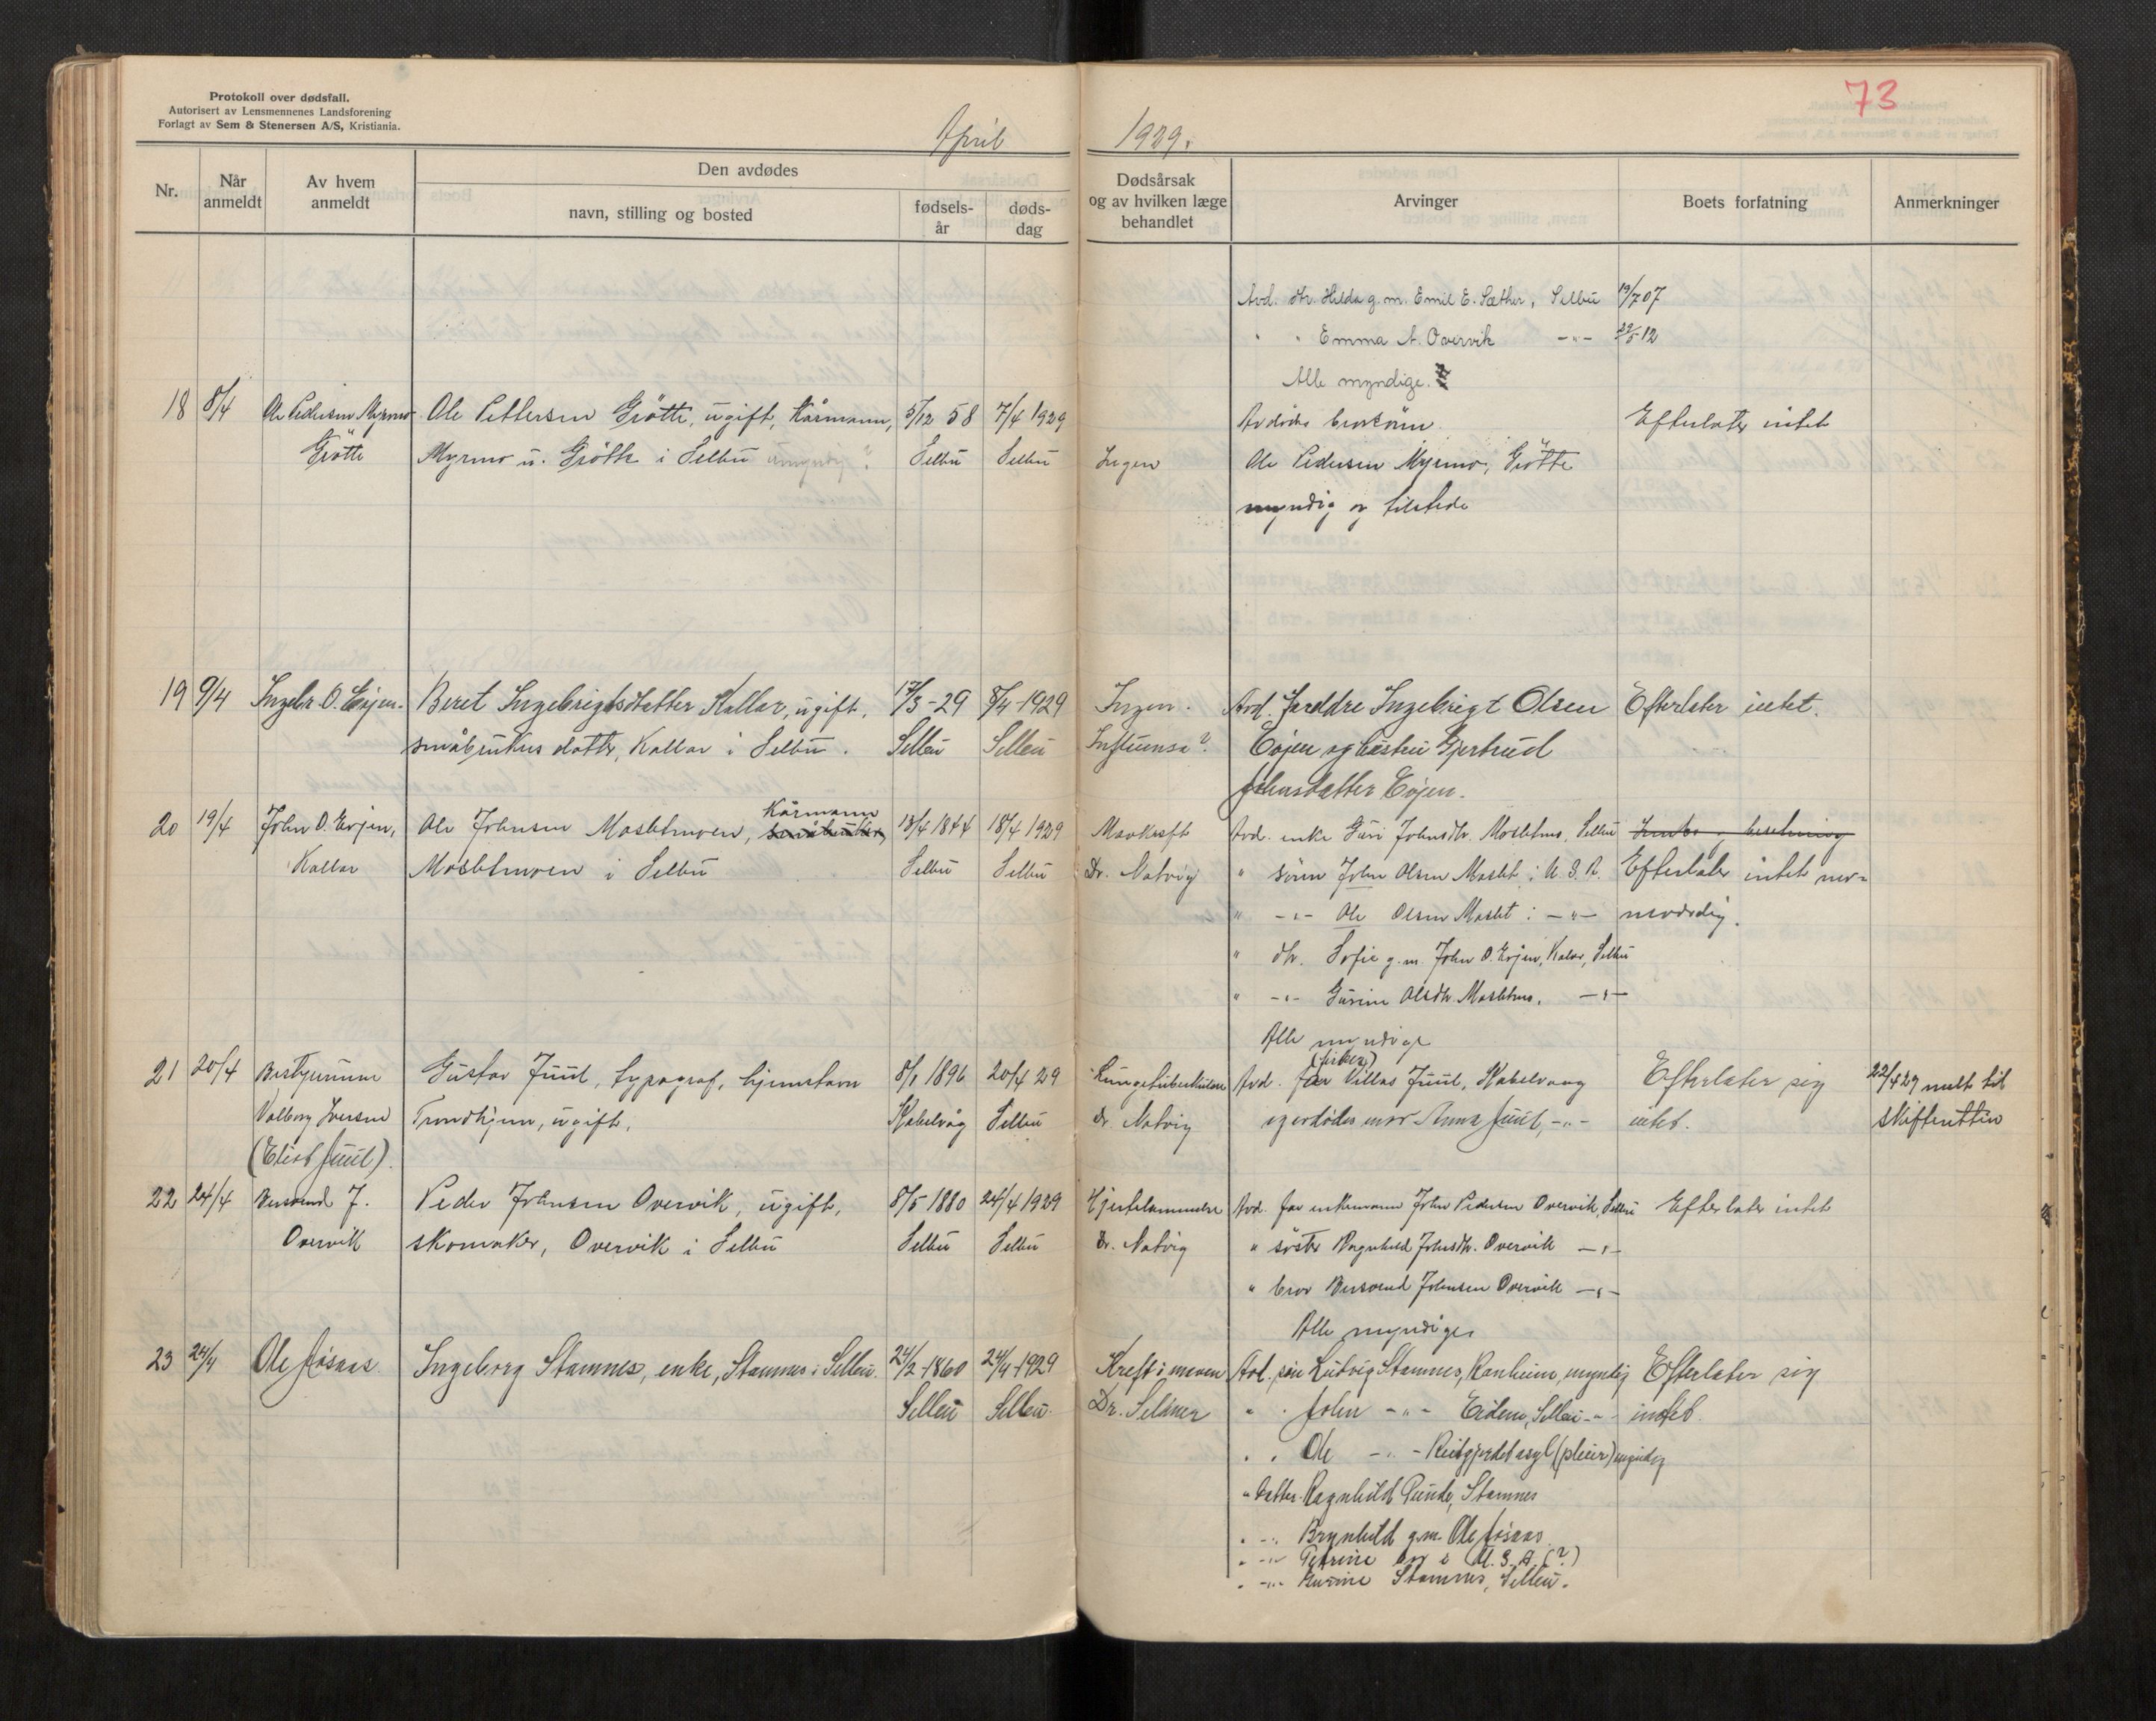 Protokoll over dødsfall.
Autorisert av Lensmennenes Landsforening
Forlagt av Sem & Stenersen A/S, Kristiania.
April 1929.
73
Nr.
Når anmeldt
Av hvem anmeldt
Den avdødes
navn, stilling og bosted
fødsels-år
døds-dag
Dødsårsak og av hvilken læge behandlet
Arvinger
Boets forfatning
Anmerkninger
Avd. dtr. Hilda g. m. Emil E. Sæther, Selbu 19/7 07
" " Emma A. Overvik -"- 22/5 12
Alle myndige.
18 8/4 Ole Pedersen Myrmo Ole Pettersen Grötte, ugift, Kårmann, 5/12 58 7/4 1929 Avdödes brorsönn Efterlater intet
Grötte Myrmo u. Grötte i Selbu Selbu Selbu Ingen Ole Pedersen Myrmo, Grötte
myndig og tilstede
19 9/4 Ingebr. O. Evjen. Beret Ingebrigtsdatter Kallar, ugift, 17/3-29 8/4-1929 Ingen. Avd. foreldre Ingebrigt Olsen Efterlater intet.
småbrukers datter, Kallar i Selbu. Selbu Selbu Influensa? Evjen og hustru Gjertrud
Johnsdatter Evjen.
Kårmann
20 19/4 John O. Evjen, Ole Johnsen Mosletmoen, småbruker, 13/4 1844 18/4 1929 Marvkreft Avd. enke Guri Johnsdtr. Mosletmo, Selbu
Kallar Mosletmoen i Selbu Selbu Selbu Dr. Natvig " sönn John Olsen Moslet i U.S.A. Efterlater intet nev-
" -"- Ole Olsen Moslet i -"- neverdig.
" dtr. Sofie g. m. John O. Evjen, Kalar, Selbu
" -"- Gurine Olsdtr. Mosletmo, -"-
Alle myndige
(fisker)
21 20/4 Bestyrerinne Gustav Juul, typograf, hjemstavn 8/1 1896 20/4 29 Lungetuberkulose Avd. far Villas Juul, Kabelvaag Efterlater sig 22/4 29 meldt til
Valborg Iversen Trondhjem, ugift, Kabelvåg Selbu Dr. Natvig og avdödes mor Anna Juul, -"- intet. skifteretten
(Elise Juul).
22 24/4 Bersvend J. Peder Johnsen Overvik, ugift, 8/5 1880 24/4 1929 Hjertelammelse Avd. far enkemann John Pedersen Overvik, Selbu Efterlater intet
Overvik skomaker, Overvik i Selbu Selbu Selbu Dr. Natvig " söster Ragnhild Johnsdtr. Overvik -"-
" bror Bersvend Johnsen Overvik -"-
Alle myndige
23 24/4 Ole Aösaas Ingeborg Stamnes, enke, Stamnes i Selbu. 24/2-1860 24/4-1929 Kreft i maven Avd. sön Ludvig Stamnes, Ranheim, myndig Efterlater sig
Selbu Selbu. Dr. Selmer " " John -"- Eidem, Selbu -"- intet.
" " Ole -"- Reitgjerdet asyl (pleier) myndig
" datter Ragnhild Runde, Stamnes
" -"- Brynhild g.m. Ole Aösaas
" -"- Petrine bor i U.S.A (?)
" -"- Stamnes, Selbu.